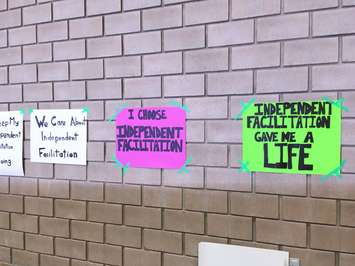 Keep My
We Care About
Independent
Facilitation
I CHOOSE
INDEPENDENT
FACILITATION
INDEPENDENT
FACILITATION
GAVE ME A
LIFE